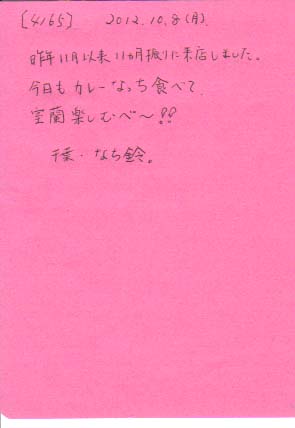 [4165] 2012.10.8(月)
昨年11月以来11ヵ月振りに来店しました。
今日もカレーなっち食べて
室蘭楽しむべ〜!!
千葉・なち鈴。